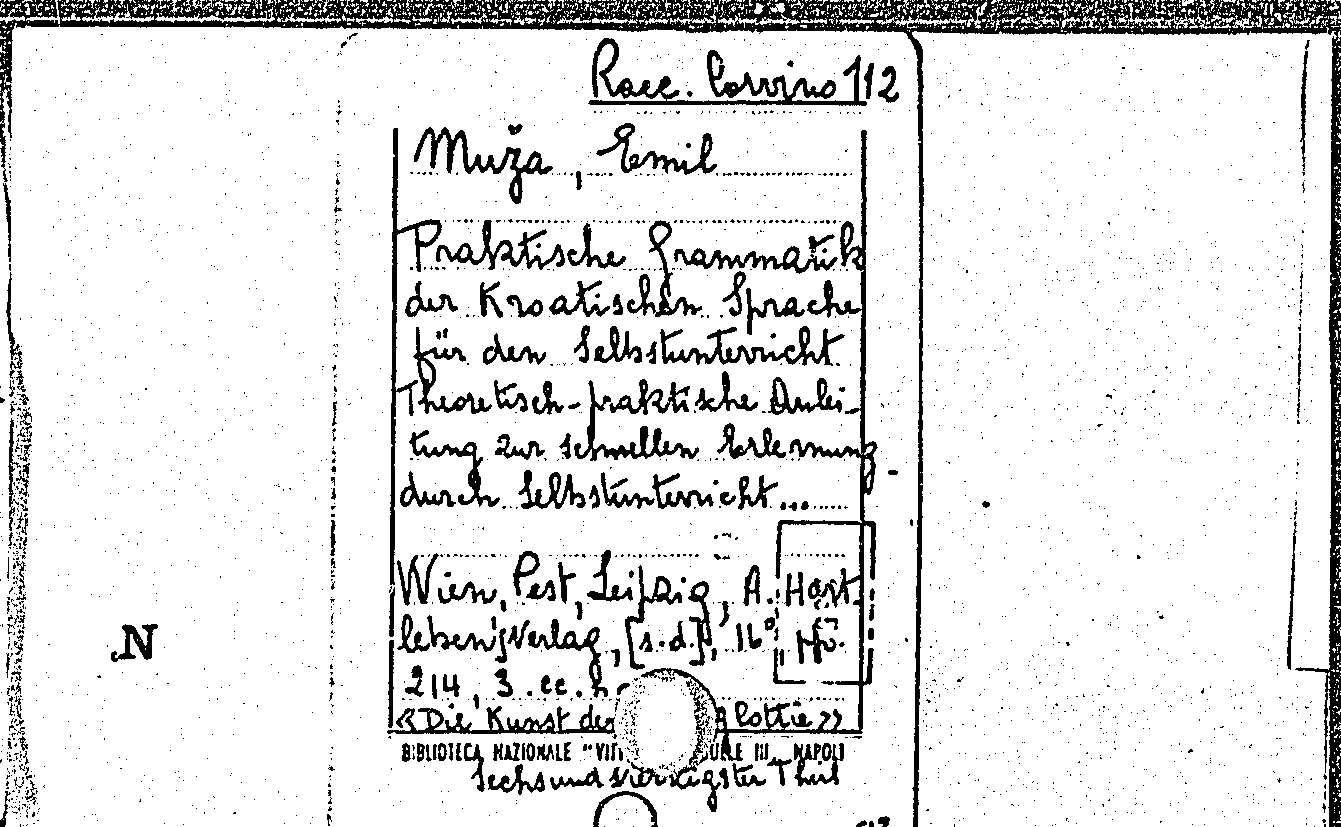 Racc. Corvino 112
Muža, Emil
Praktische Grammatik
der Kroatischen Sprache
für den Selbstunterricht
Theoretisch-praktische Anlei-
tung zur schnellen Erlernung
durch Selbstunterricht...
Wien, Pest, Leipzig, A. Hart.
leben's Verlag, [s.d.], 16° pp.
214, 3 .cc.
«Die Kunst der lottie»
BIBLIOTECA NAZIONALE "VIT UELE III NAPOLI
Sechsundvierzigster Theil
N